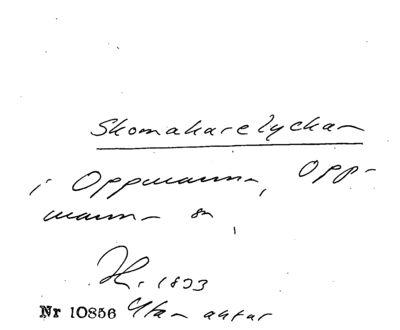 Skomakarelyckan
i Oppmanna, Opp-
manna sn
H. 1833
Nr 10856 Utan antar